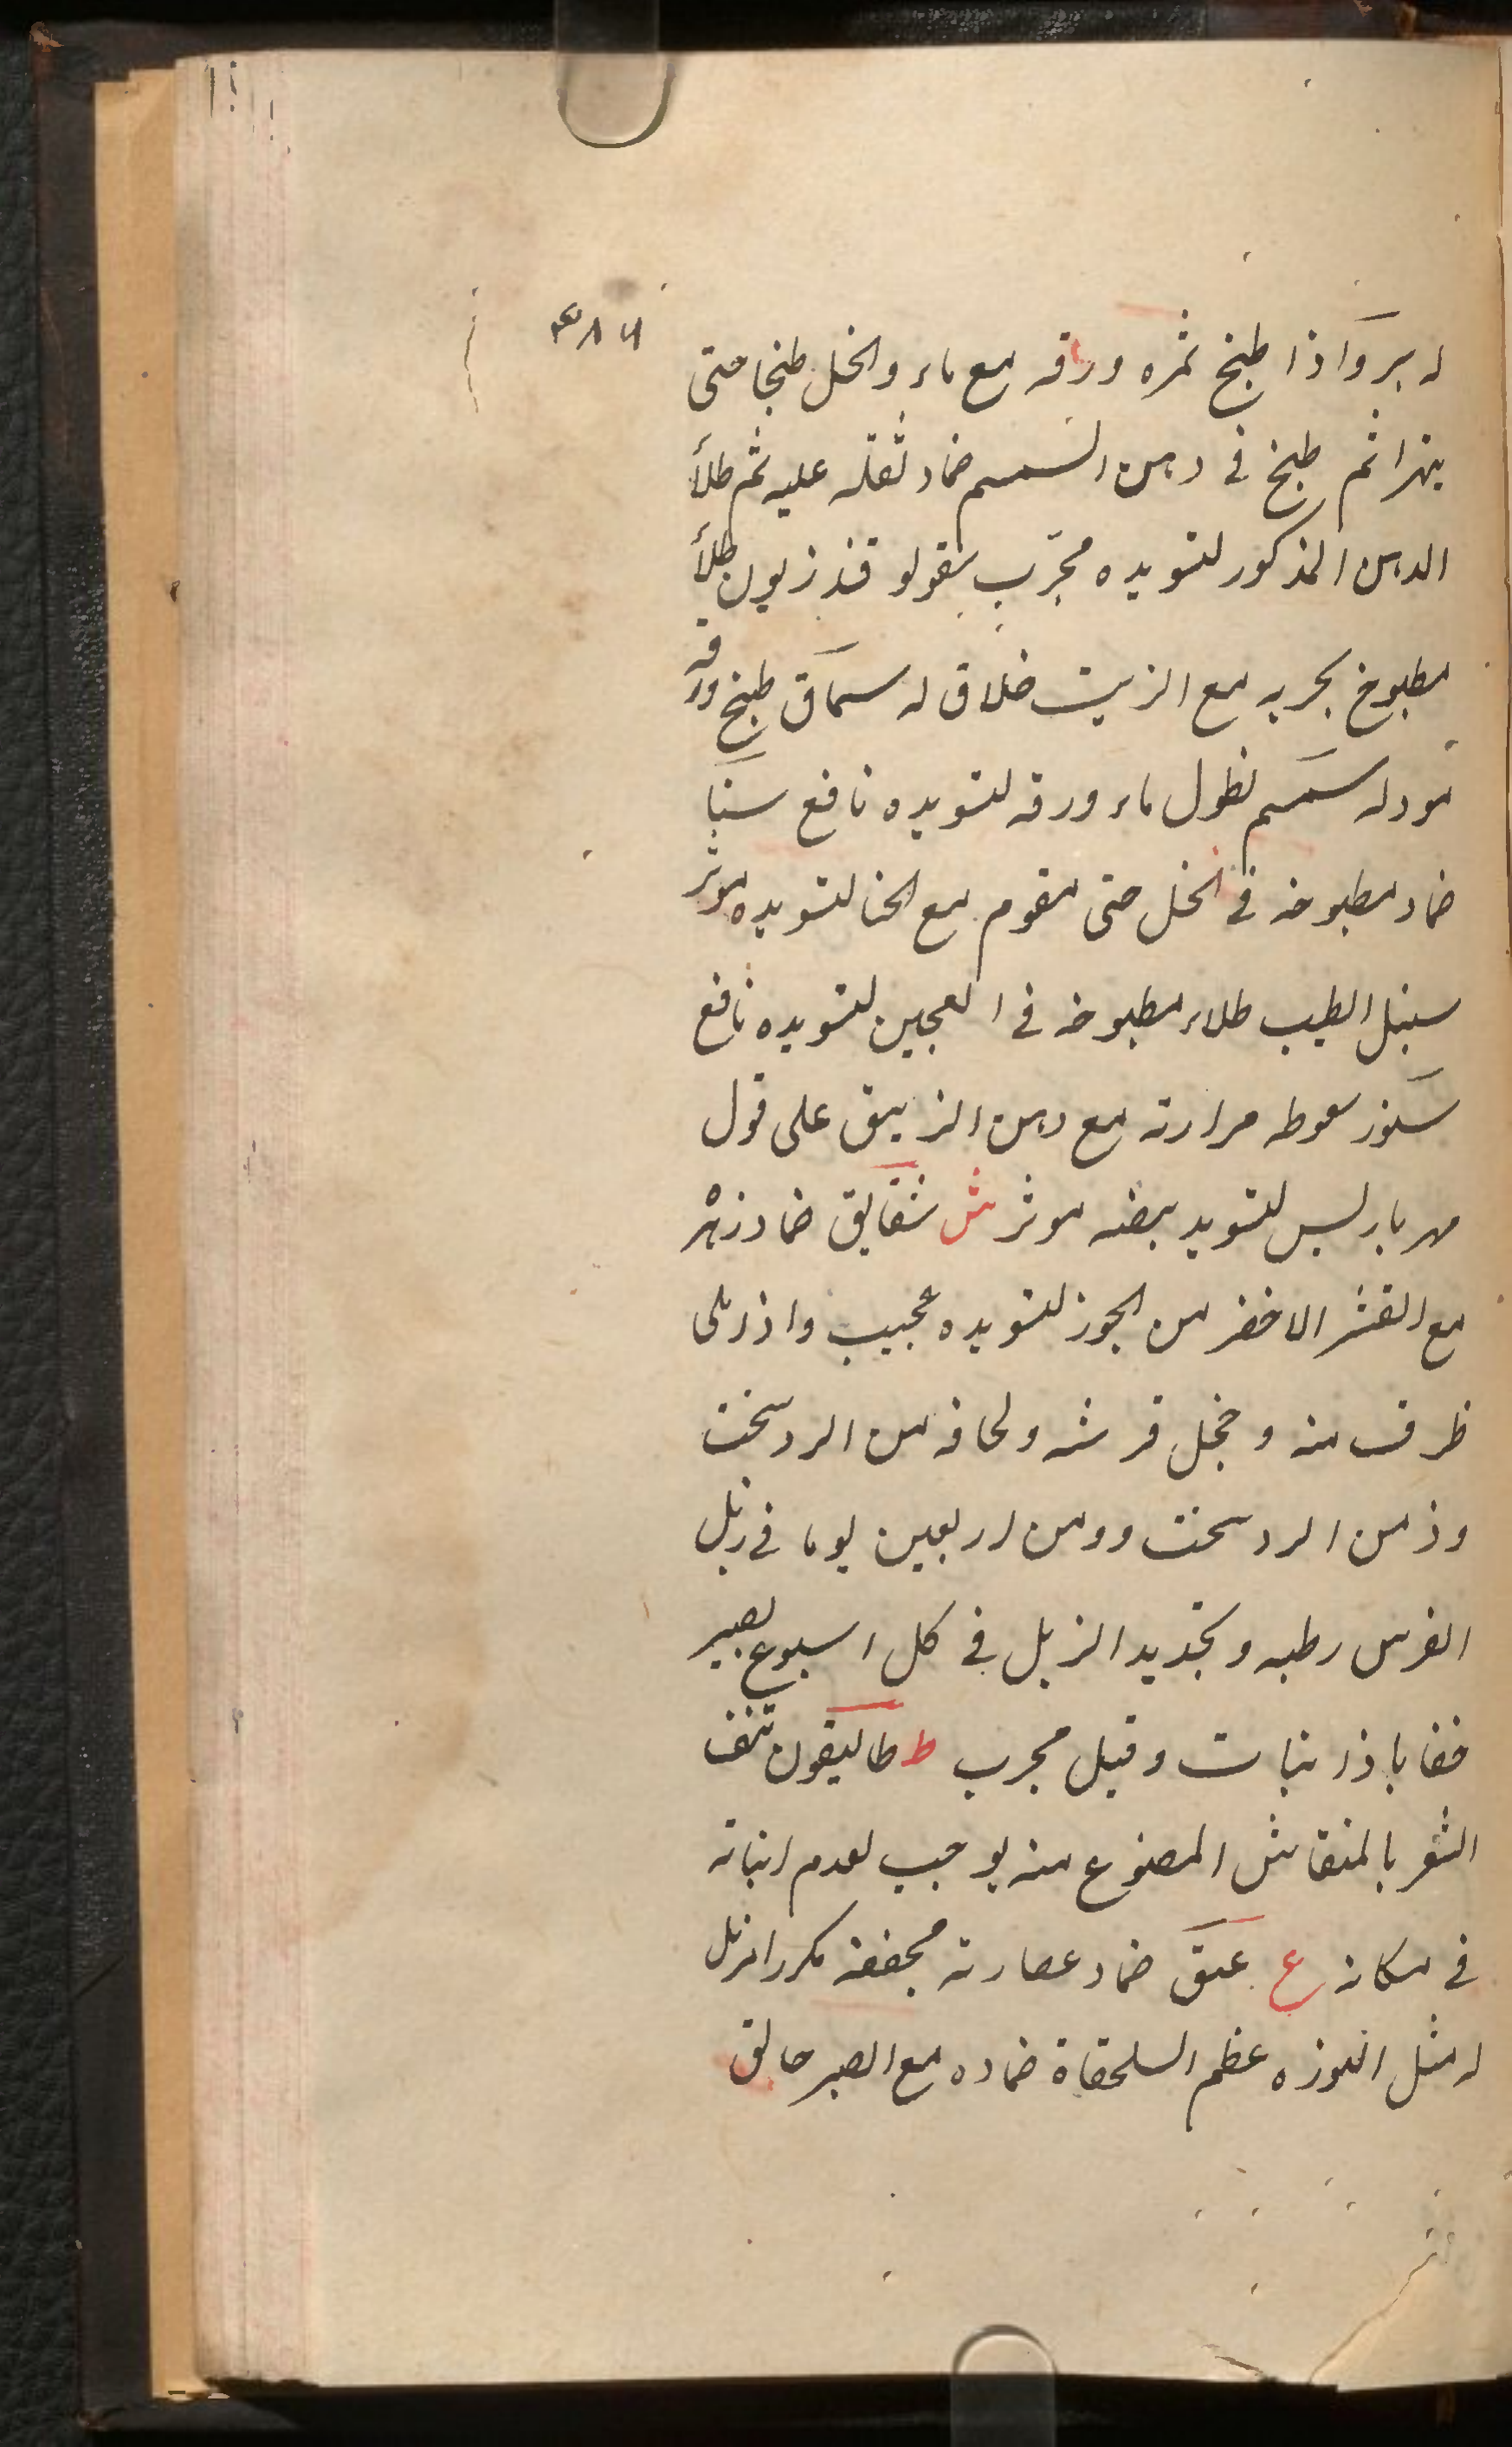 ٣٨٦
له سرو اذا طبخ ثمره ورقه مع ماء والخل طبخا حتى
يتهرا ثم طبخ في دهن السمسم ضماد ثقله عليه ثم طلأ
الدهن المذكور لتسويده مجرب بقولو طلأ
مطبوخ مع الزيت خلاق له سماق طبخ ورقه
سود له سمسم نطول ماء ورقه لتسويده نافع سنبا
ضماد مطبوخه في الخل حتى يتقوم مع الحنا لتسويده موثر
سنبل الطيب طلاء مطبوخه في العجين لتسويده نافع
سنور سعوط مرارته مع دهن الزيبق على قول
لتسويد بيضه موثر ش شقايق ضماد زهره
مع القشر الاخضر من الجوز لتسويده عجيب واذا ملى
ظرف منه وجعل فرشه ولحافه من الردسخت
ودفن اربعين يوما في زبل
الفرس رطبه وتجديد الزبل في كل اسبوع يصير
خضابا ذا نبات وقيل مجرب ط طاليقون نتف
الشعر بالمنقاش المصنوع منه يوجب لعدم انباته
في مكانه ع علق ضماد عصارته مجففة مكررا مزيل
له مثل اللوزه عظم السلحفاة ضماده مع الصبر حالق